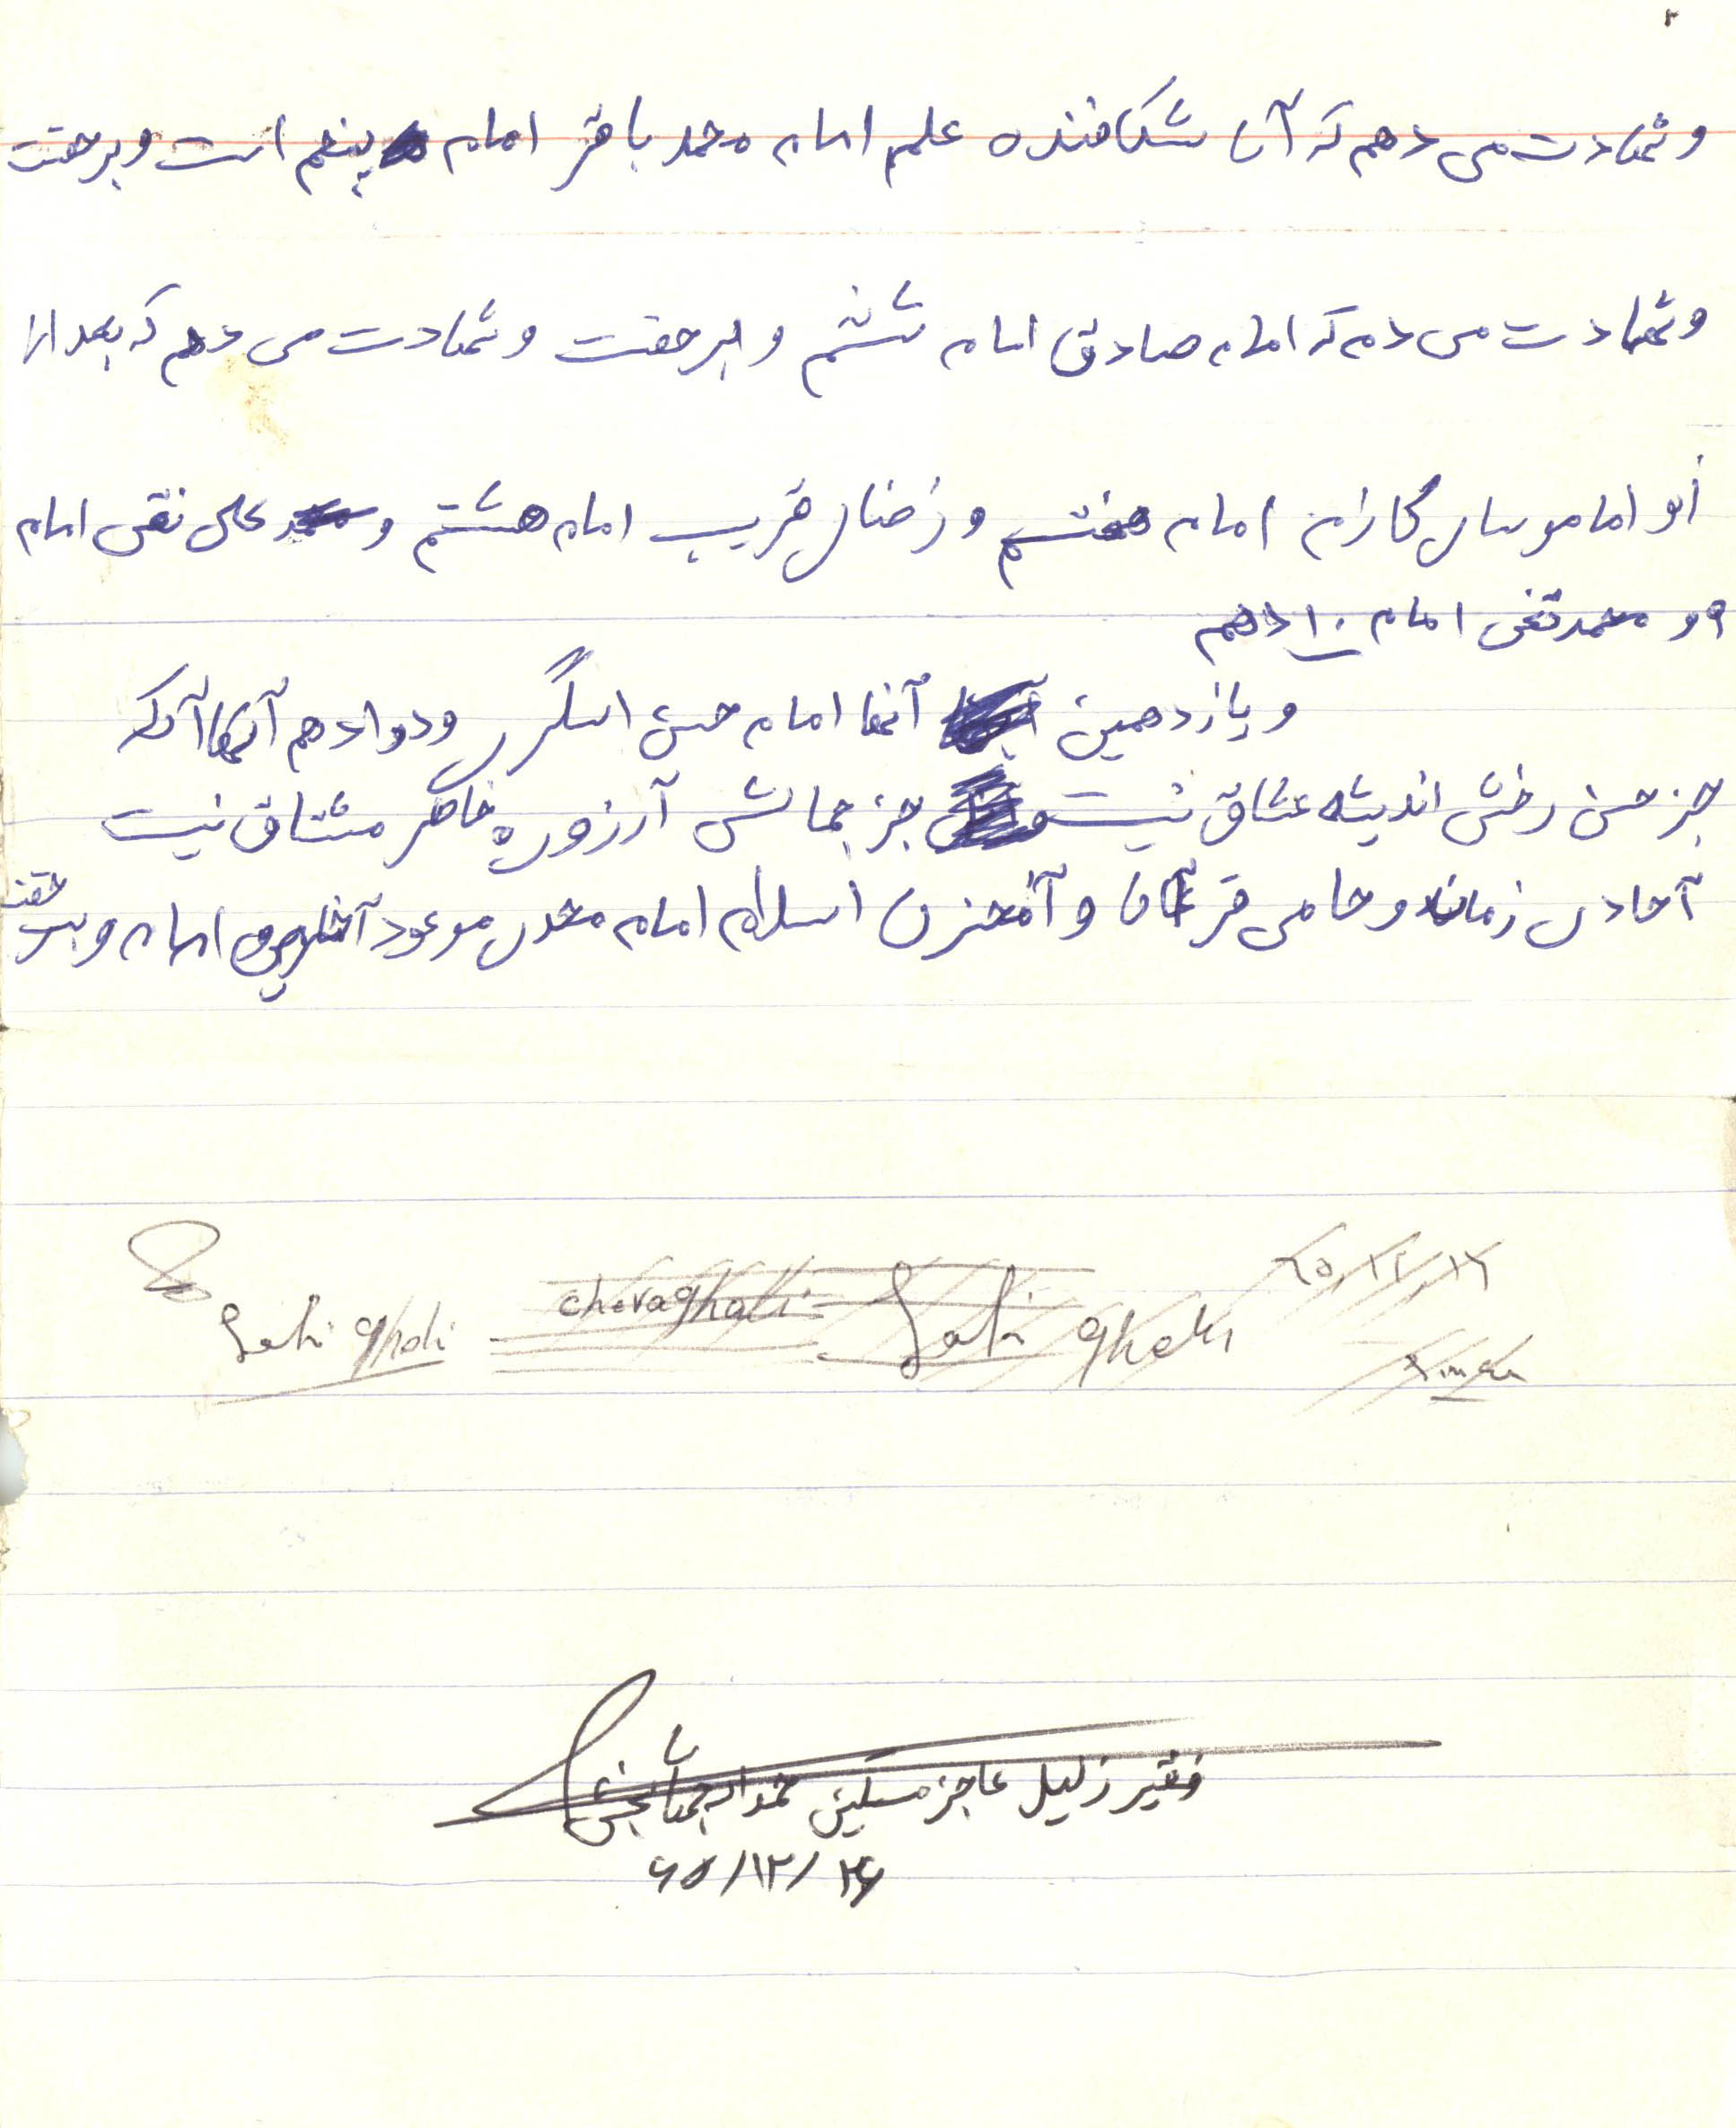 ۲
وشهادت می دهم که آن شکافنده علم امام محمد باقر امام پنجم است و برحقست
وشهادت می دهم که امام صادق امام ششم و برحقست وشهادت می دهم که بعد از
او امام موسای کازم امام هفتم و رضای قریب امام هشتم و علی نقی امام
۹ و محمد تقی امام ۱۰ دهم
و یازدهمین آنها امام حسن اسگری ودوادهم آنها آنکه
جز حسن رخش اندیشه عشاق نیست جز جمالش آرزوره خاطر مشتاق نیست
آحادی زمان وحامی قرآن و آنمخزن اسلام امام مهدی موعود امام و بر حقست
Safi Gholi cheraghali Safi Gholi
فقیر زلیل عاجز مسکین
۶۵/۱۲/۲۶